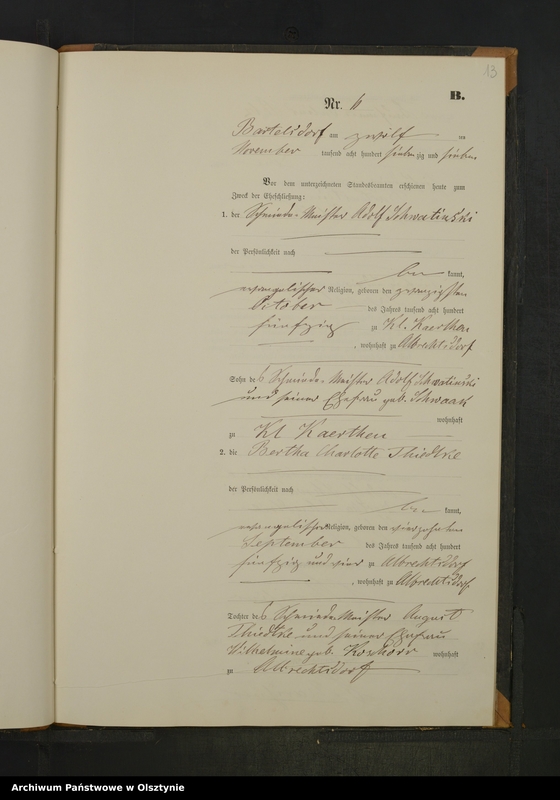 13
B.
Nr. 11
Bartelsdorf am zwölf ten
November tausend acht hundert sieben zig und sieben
Vor dem unterzeichneten Standesbeamten erschienen heute zum
Zweck der Eheschließung:
1. der Schmiede-Meister Adolf Schwatinski
der Persönlichkeit nach
be kannt,
evangelischer Religion, geboren den zwanzigsten
October des Jahres tausend acht hundert
fünfzig zu Kl. Kaerthen
, wohnhaft zu Albrechtsdorf
Sohn des Schmiede-Meister Adolf Schwatinski
und seiner Ehefrau geb. Schwaak
wohnhaft
zu Kl Kaerthen
2. die Bertha Charlotte Thiedtke
der Persönlichkeit nach
be kannt,
evangelischer Religion, geboren den vierzehnten
September des Jahres tausend acht hundert
fünfzig und vier zu Albrechtsdorf
, wohnhaft zu Albrechtsdorf
Tochter des Schmiede Meister August
Thiedtke und seiner Ehefrau
Wilhelmine geb. wohnhaft
zu Albrechtsdorf
Archiwum Państwowe w Olsztynie